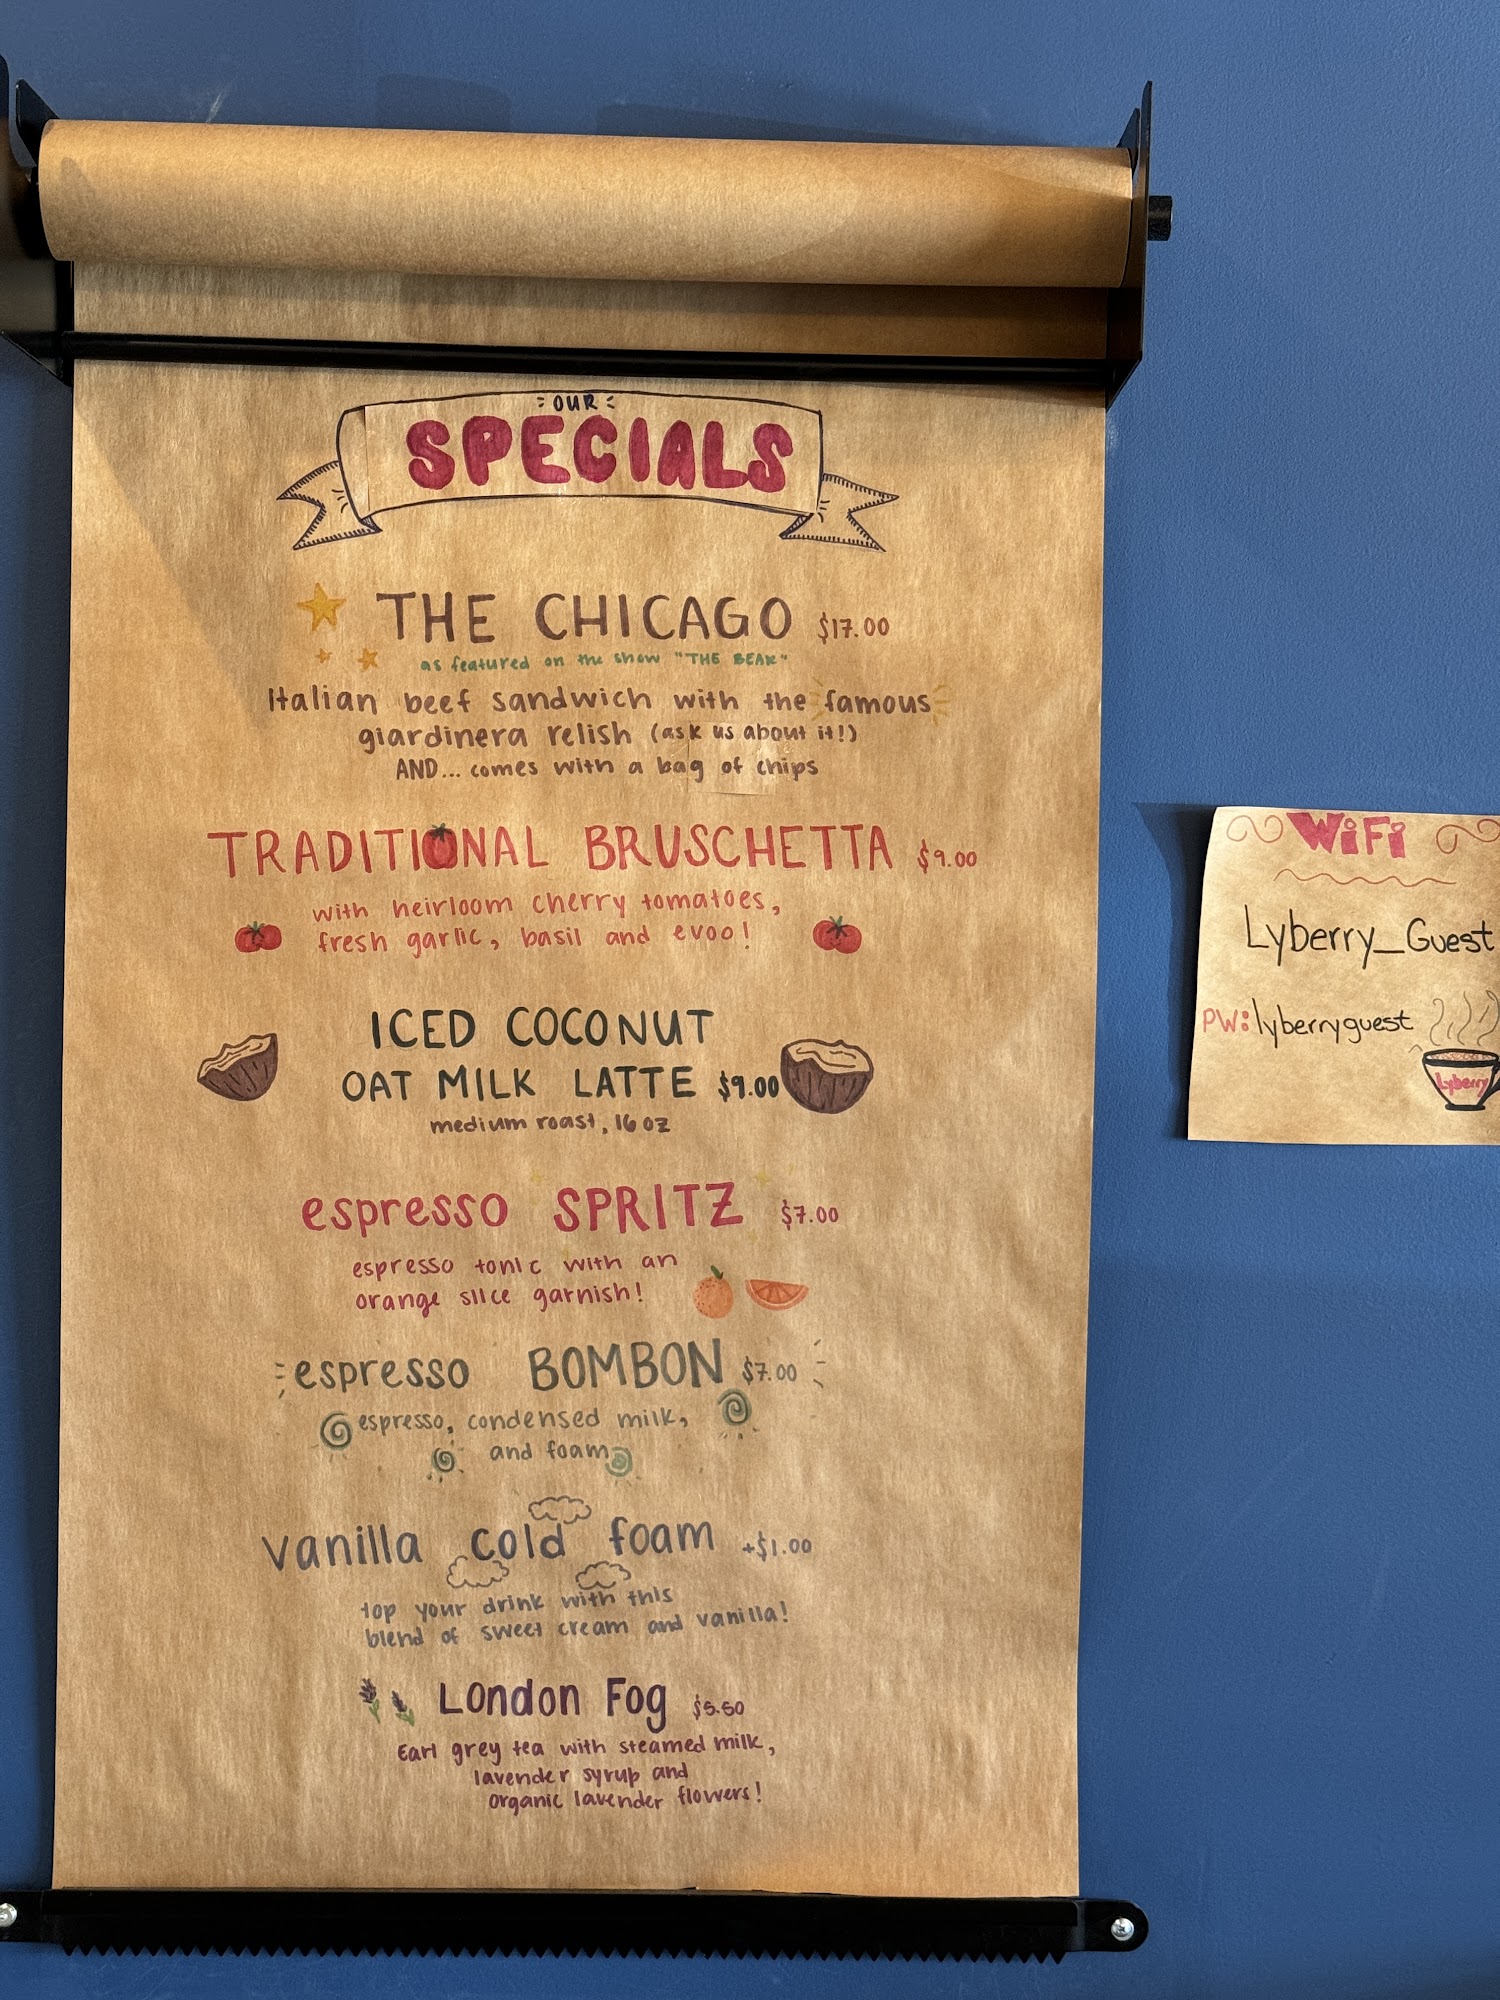 OUR
SPECIALS
THE CHICAGO $17.00
as featured on the show "THE BEAR"
Italian beef sandwich with the famous
giardinera relish (ask us about it!)
AND... comes with a bag of chips
TRADITIONAL BRUSCHETTA $9.00
with heirloom cherry tomatoes,
fresh garlic, basil and evoo!
ICED COCONUT
OAT MILK LATTE $9.00
medium roast, 16 oz
espresso SPRITZ $7.00
espresso tonic with an
orange slice garnish!
espresso BOMBON $7.00
espresso, condensed milk,
and foam
vanilla cold foam +$1.00
top your drink with this
blend of sweet cream and vanilla!
London Fog $5.50
Earl grey tea with steamed milk,
lavender syrup and
organic lavender flowers!
WiFi
Lyberry_Guest
PW: lyberryguest
Lyberry